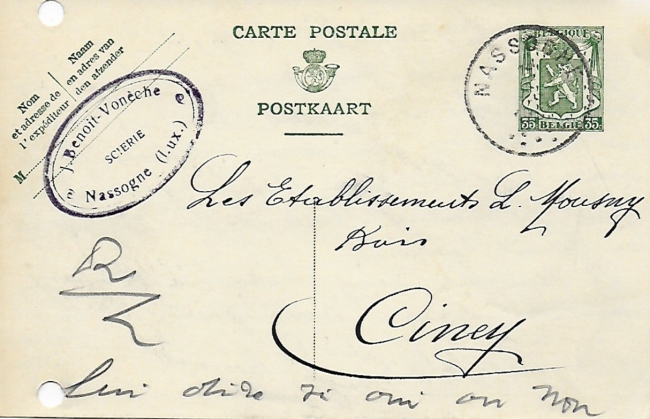 CARTE POSTALE
POSTKAART
Nom
et adresse de
l'expéditeur
Naam
en adres van
den afzender
M
J. Benoit-Vonèche
SCIERIE
Nassogne (Lux.)
NASSOGNE
BELGIQUE
35 BELGIË 35
Les Etablissements L. Mousny
Bois
Ciney
R
Lui dire si oui ou non